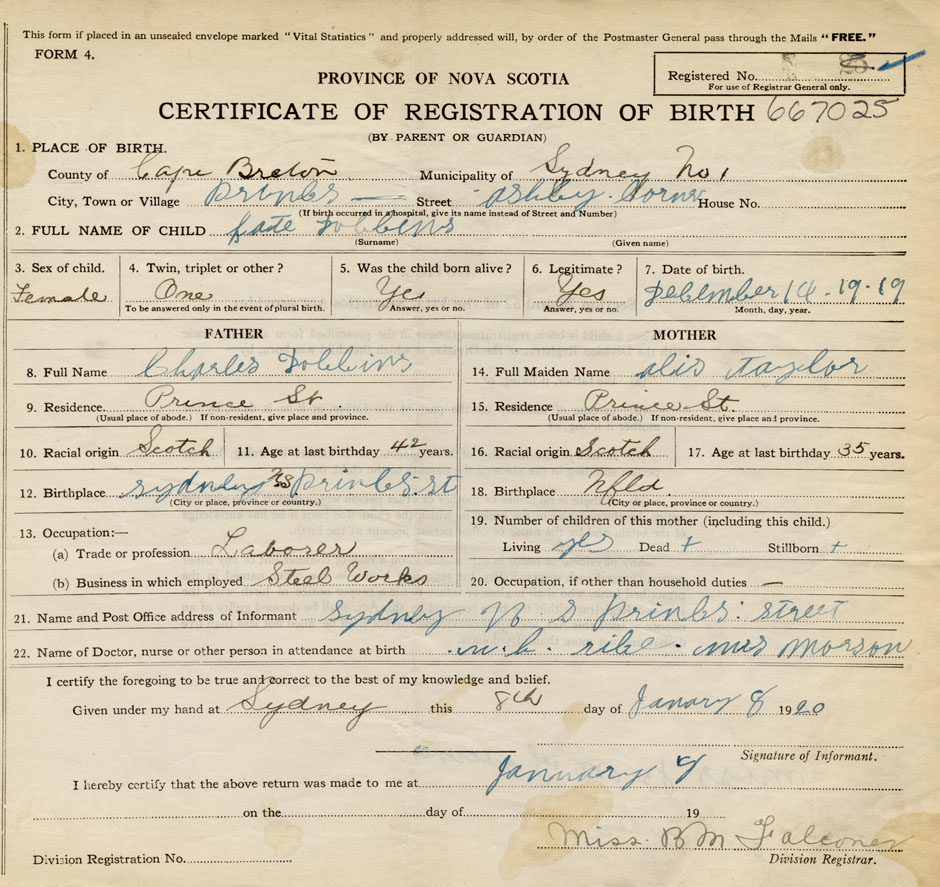 This form if placed in an unsealed envelope marked "Vital Statistics" and properly addressed will, by order of the Postmaster General pass through the Mails "FREE."
FORM 4.
Registered No.
For use of Registrar General only.
PROVINCE OF NOVA SCOTIA
CERTIFICATE OF REGISTRATION OF BIRTH 667025
(BY PARENT OR GUARDIAN)
1. PLACE OF BIRTH.
County of Cape Breton Municipality of Sydney No 1
City, Town or Village Prinbs — Street Ashby Corner House No.
(If birth occurred in a hospital, give its name instead of Street and Number)
2. FULL NAME OF CHILD Kate Dobbins
(Surname) (Given name)
3. Sex of child. 4. Twin, triplet or other? 5. Was the child born alive? 6. Legitimate? 7. Date of birth.
Female One Yes Yes December 14 - 19-19
To be answered only in event of plural birth. Answer, yes or no. Answer, yes or no. Month, day, year.
FATHER MOTHER
8. Full Name Charles Dobbins 14. Full Maiden Name alis Taylor
9. Residence. Prince St. 15. Residence Prince St.
(Usual place of abode.) If non-resident, give place and province. (Usual place of abode.) If non-resident, give place and province.
10. Racial origin Scotch 11. Age at last birthday 42 years. 16. Racial origin Scotch 17. Age at last birthday 35 years.
12. Birthplace Sydney NS Prinbs. st 18. Birthplace Nfld.
(City or place, province or country.) (City or place, province or country.)
13. Occupation:— 19. Number of children of this mother (including this child.)
(a) Trade or profession Laborer Living yes Dead + Stillborn +
(b) Business in which employed Steel Works 20. Occupation, if other than household duties —
21. Name and Post Office address of Informant Sydney N S Prinbs: street
22. Name of Doctor, nurse or other person in attendance at birth mrs morson
I certify the foregoing to be true and correct to the best of my knowledge and belief.
Given under my hand at Sydney this 8th day of January 8 1920
Signature of Informant.
I hereby certify that the above return was made to me at January 9
on the day of 19
Miss. B M Falconer
Division Registration No. Division Registrar.